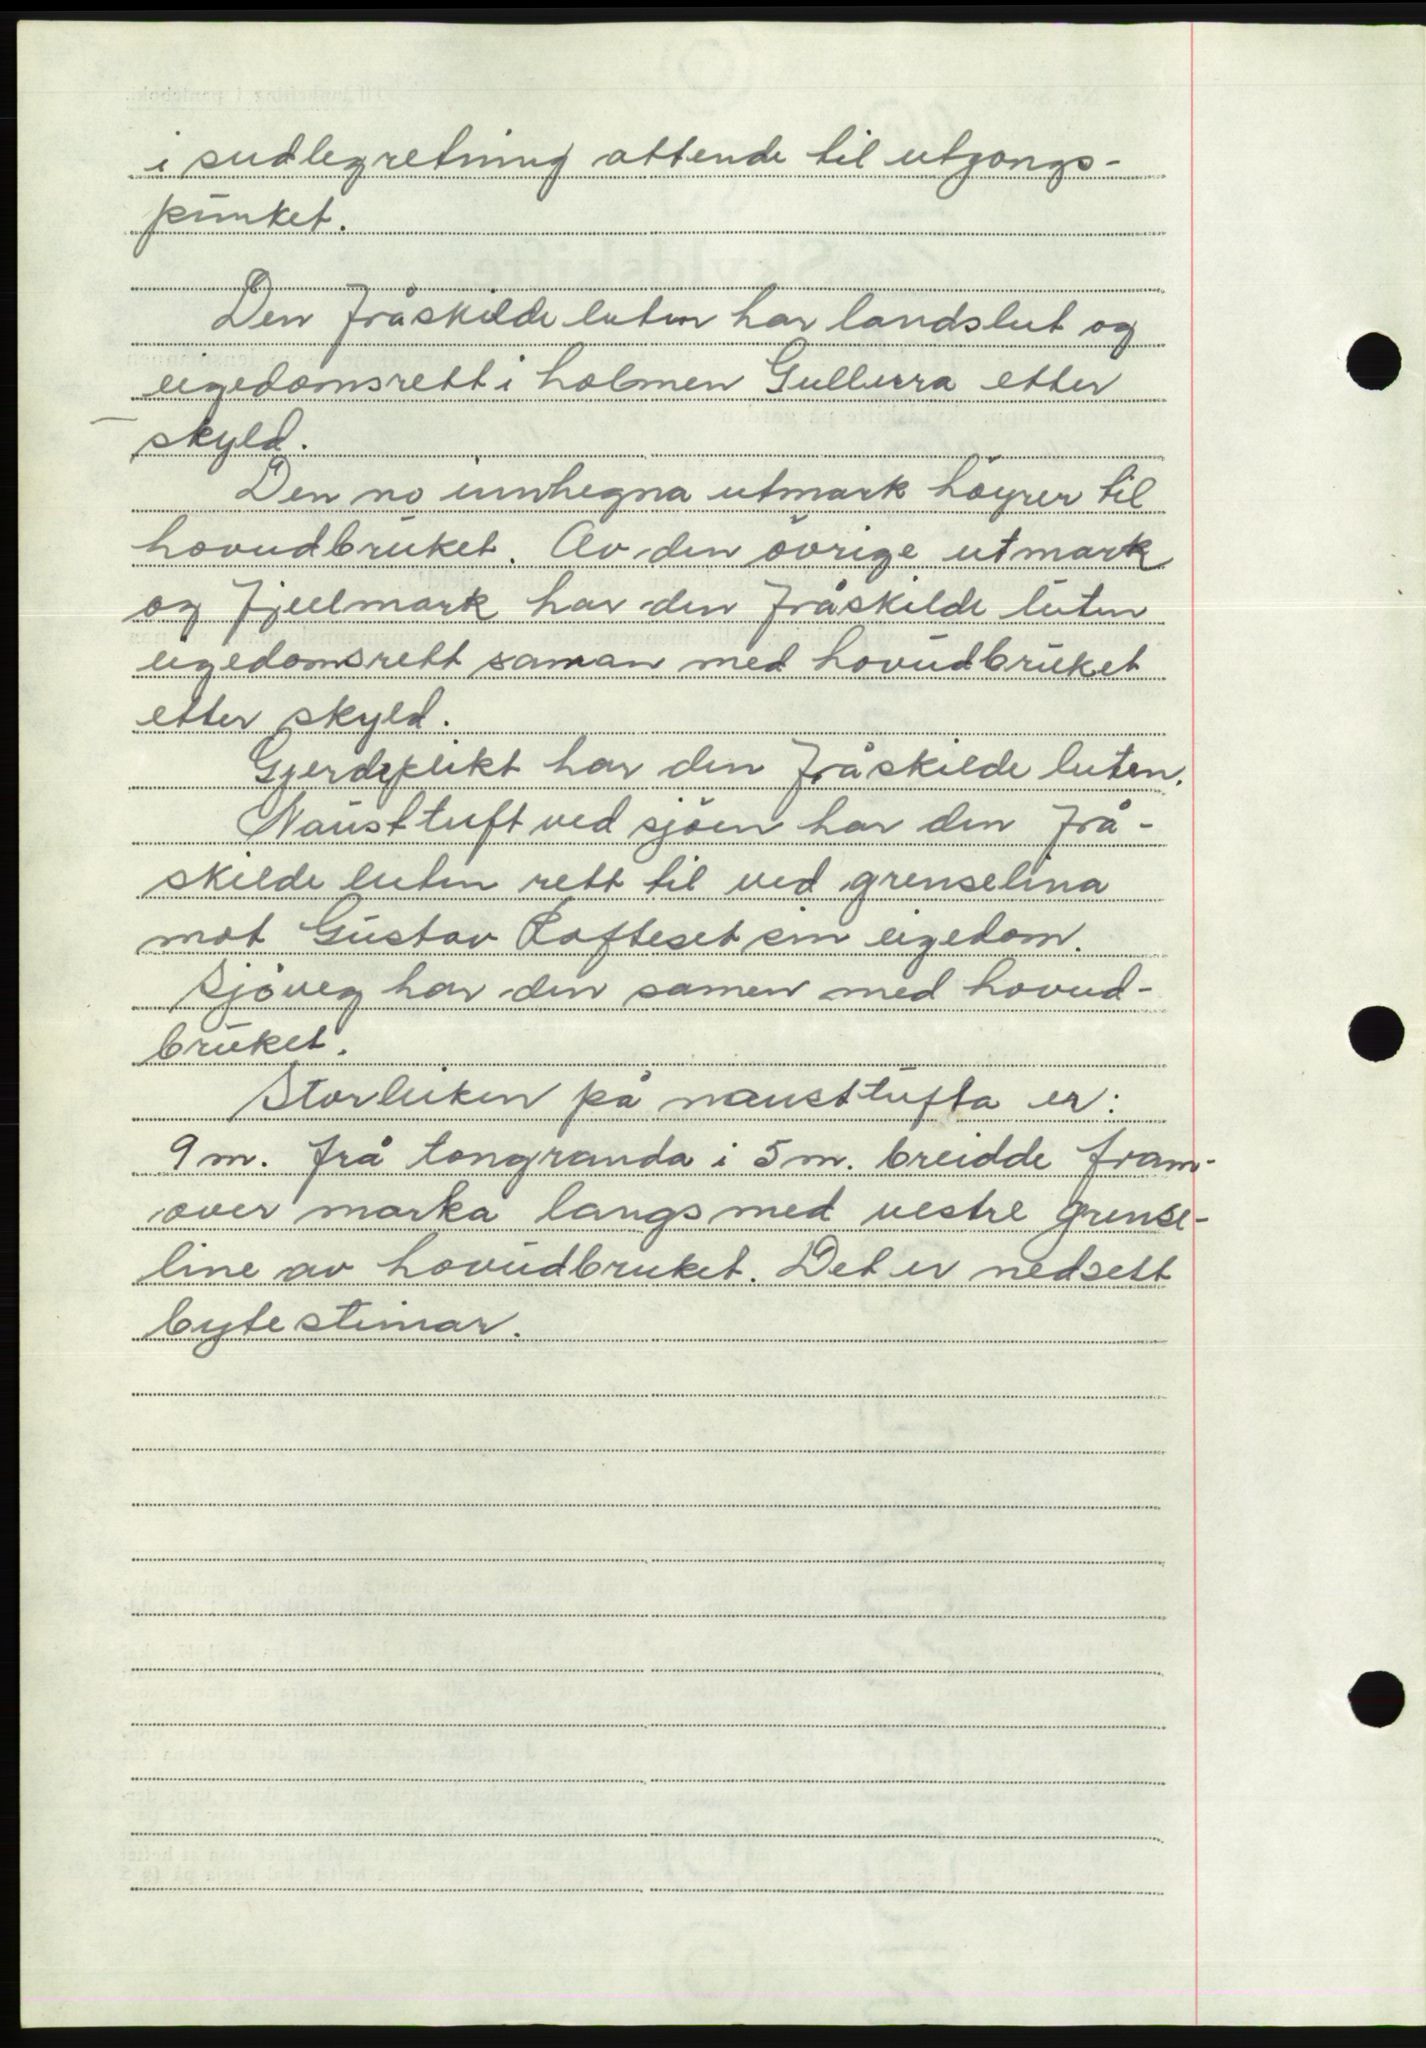 i sudlegretning attende til utgongs-
punket.
Den fråskilde luten har landslut og
eigedomsrett i holmen Gullurra etter
skyld.
Den no innhegna utmark höyrer til
hovudbruket. Av den övrige utmark
og fjellmark har den fråskilde luten
eigedomsrett saman med hovudbruket
etter skyld.
Gjerdeplikt har den fråskilde luten.
Nausttuft ved sjöen har den frå-
skilde luten rett til ved grenselina
mot Gustav Lofteset sin eigedom.
Sjöveg har den samen med hovud-
bruket.
Storleiken på nausttufta er:
9 m. frå tongranda i 5 m. breidde fram-
over marka langs med vestre grense-
line av hovudbruket. Det er nedsett
bytestimar.